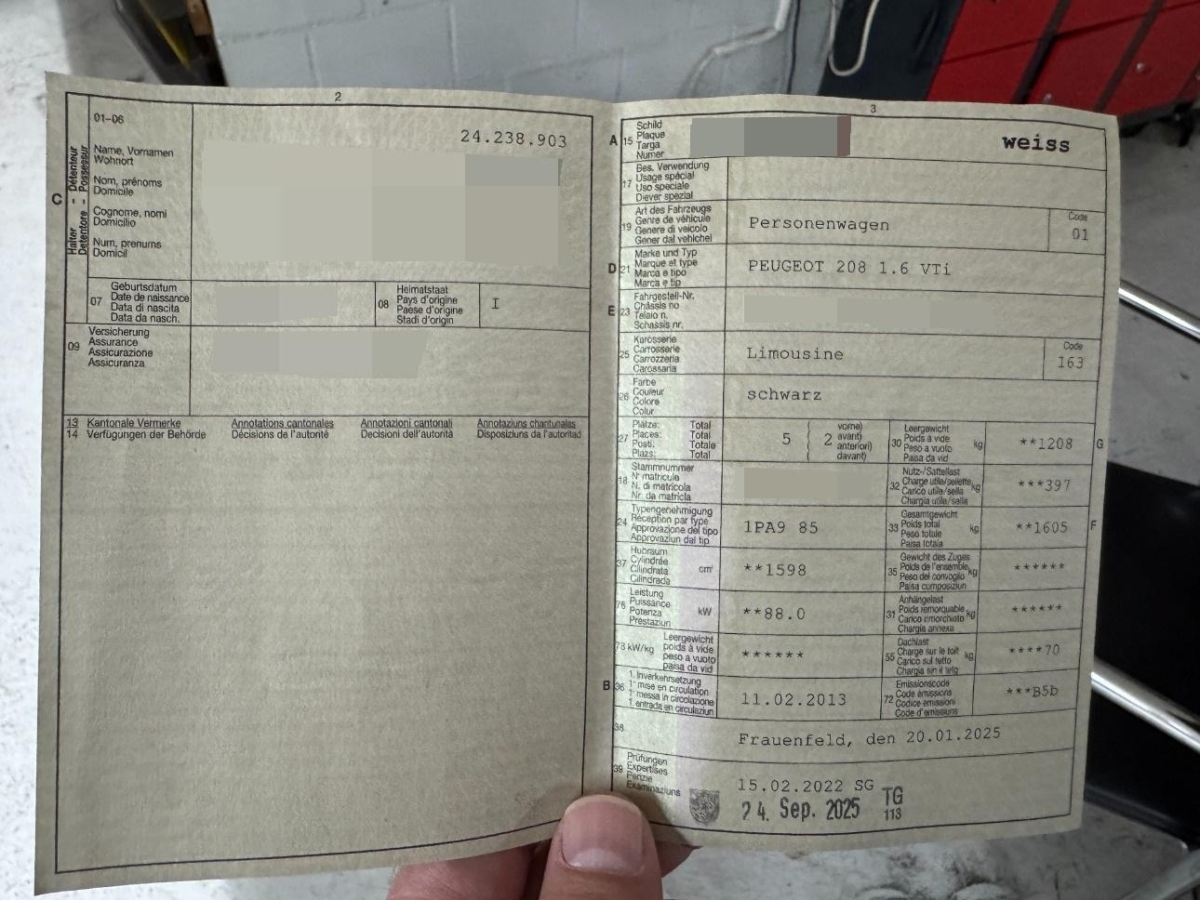 2
01-06
24.238.903
C
Halter - Détenteur
Detentore - Possessur
Name, Vornamen
Wohnort
Nom, prénoms
Domicile
Cognome, nomi
Domicilio
Num, prenums
Domicil
07
Geburtsdatum
Date de naissance
Data di nascita
Data da nasch.
08
Heimatstaat
Pays d'origine
Paese d'origine
Stadi d'origin
I
09
Versicherung
Assurance
Assicurazione
Assicuranza
13 Kantonale Vermerke Annotations cantonales Annotazioni cantonali Annotaziuns chantunales
14 Verfügungen der Behörde Décisions de l'autorité Decisioni dell'autorità Disposiziuns da l'autoritad
3
A 15
Schild
Plaque
Targa
Numer
weiss
17
Bes. Verwendung
Usage spécial
Uso speciale
Diever spezial
19
Art des Fahrzeugs
Genre de véhicule
Genere di veicolo
Gener dal vehichel
Personenwagen
Code
01
D 21
Marke und Typ
Marque et type
Marca e tipo
Marca e tip
PEUGEOT 208 1.6 VTi
E 23
Fahrgestell-Nr.
Châssis no
Telaio n.
Schassis nr.
25
Karosserie
Carrosserie
Carrozzeria
Carossaria
Limousine
Code
163
26
Farbe
Couleur
Colore
Colur
schwarz
27
Plätze: Total
Places: Total
Posti: Totale
Plazs: Total
5
2
vorne)
avant)
anteriori)
davant)
30
Leergewicht
Poids à vide
Peso a vuoto
Paisa da vid
kg
**1208
G
18
Stammnummer
N° matricule
N. di matricola
Nr. da matricla
32
Nutz-/Sattellast
Charge utile/sellette
Carico utile/sella
Chargia utila/sella
kg
***397
24
Typengenehmigung
Réception par type
Approvazione del tipo
Approvaziun dal tip
1PA9 85
33
Gesamtgewicht
Poids total
Peso totale
Paisa totala
kg
**1605
F
37
Hubraum
Cylindrée
Cilindrata
Cilindrada
cm³
**1598
35
Gewicht des Zuges
Poids de l'ensemble
Peso del convoglio
Paisa cumposiziun
kg
******
76
Leistung
Puissance
Potenza
Prestaziun
kW
**88.0
31
Anhängelast
Poids remorquable
Carico rimorchiato
Chargia annexa
kg
******
78 kW/kg
Leergewicht
poids à vide
peso a vuoto
paisa da vid
******
55
Dachlast
Charge sur le toit
Carico sul tetto
Chargia sin il tetg
kg
****70
B 36
1. Inverkehrsetzung
1re mise en circulation
1a messa in circolazione
1. entrada en circulaziun
11.02.2013
72
Emissionscode
Code émissions
Codice emissioni
Code d'emissiuns
***B5b
38
Frauenfeld, den 20.01.2025
39
Prüfungen
Expertises
Perizie
Examinaziuns
15.02.2022 SG
24. Sep. 2025 TG
113